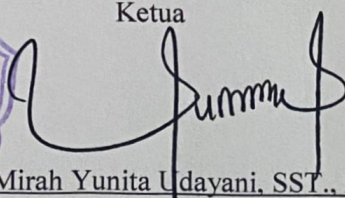 Ketua
Mirah Yunita Udayani, SST.,